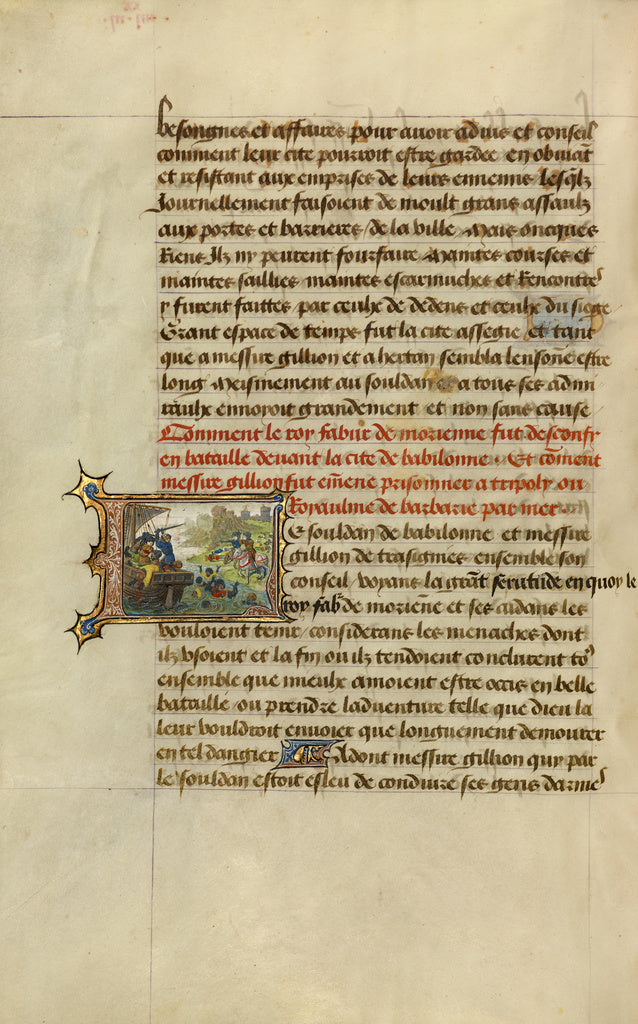 besongnes et affaires pour auoir aduis et conseil
comment leur cite pourroit estre gardee en obuiāt
et resistant aux emprises de leurs ennemis lesqlz
Journellement faisoient de moult grans assaulz
aux portes et barrieres de la ville Mais oncques
Riens Jlz ny peurent fourfaire Maintes courses et
maintes saillies maintes escarmuches et Rencontres
y furent faittes par ceulx de dedens et ceulx du siege
Grant espace de temps fut la cite assegie et tant
que a messire gillion et a hertan sembla leur sone estre
long Meismement au souldan et a tous ses admi
raulx ennuyoit grandement et non sans cause
Comment le roy fabur de morienne fut desconfy
en bataille deuant la cite de babilonne Et cōment
messire gillion fut em̄ene prisonnier a tripoly ou
Royaulme de barbarie par mer
Le souldan de babilonne et messire
gillion de trasignies ensemble son
conseil voyans la grāt seruitude en quoy le
roy fabʳ de moriēne et ses aidans les
vouloient tenir considerans les menaches dont
ilz vsoient et la fin ou ilz tendoient conclurent toꝰ
ensemble que mieulx amoient estre occis en belle
bataille ou prendre laduenture telle que dieu la
leur vouldroit enuoier que longuement demourer
en tel dangier Adont messire gillion quy par
le souldan estoit esleu de conduire ses gens darmes